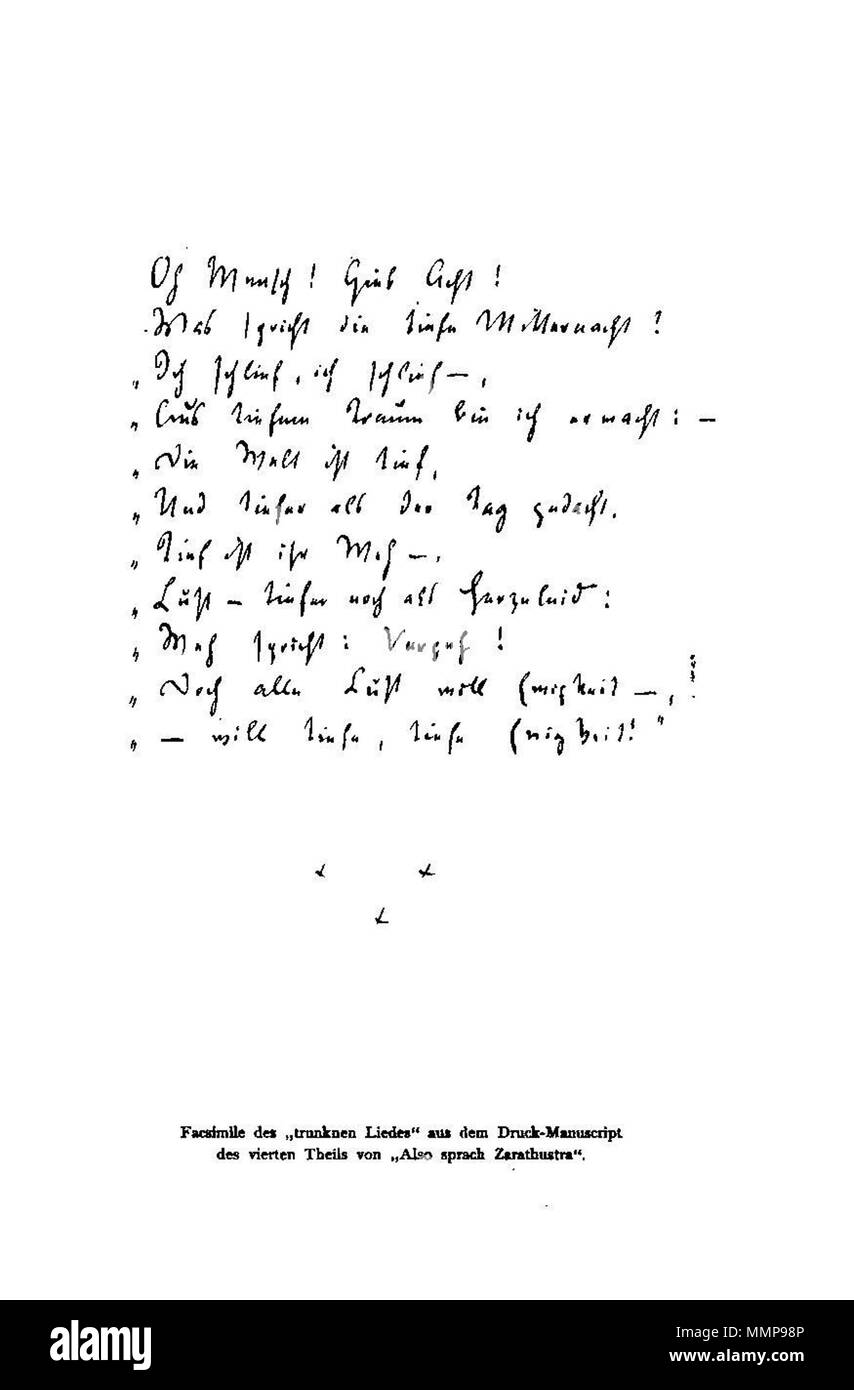 Oh Mensch! Gieb Acht!
Was spricht die tiefe Mitternacht?
„Ich schlief, ich schlief —,
„Aus tiefem Traum bin ich erwacht: —
„Die Welt ist tief,
„Und tiefer als der Tag gedacht.
„Tief ist ihr Weh —,
„Lust — tiefer noch als Herzeleid:
„Weh spricht: Vergeh!
„Doch alle Lust will Ewigkeit —,
„— will tiefe, tiefe Ewigkeit!"
Facsimile des „trunknen Liedes“ aus dem Druck-Manuscript
des vierten Theils von „Also sprach Zarathustra“.
alamy
Image ID: MMP98P
www.alamy.com